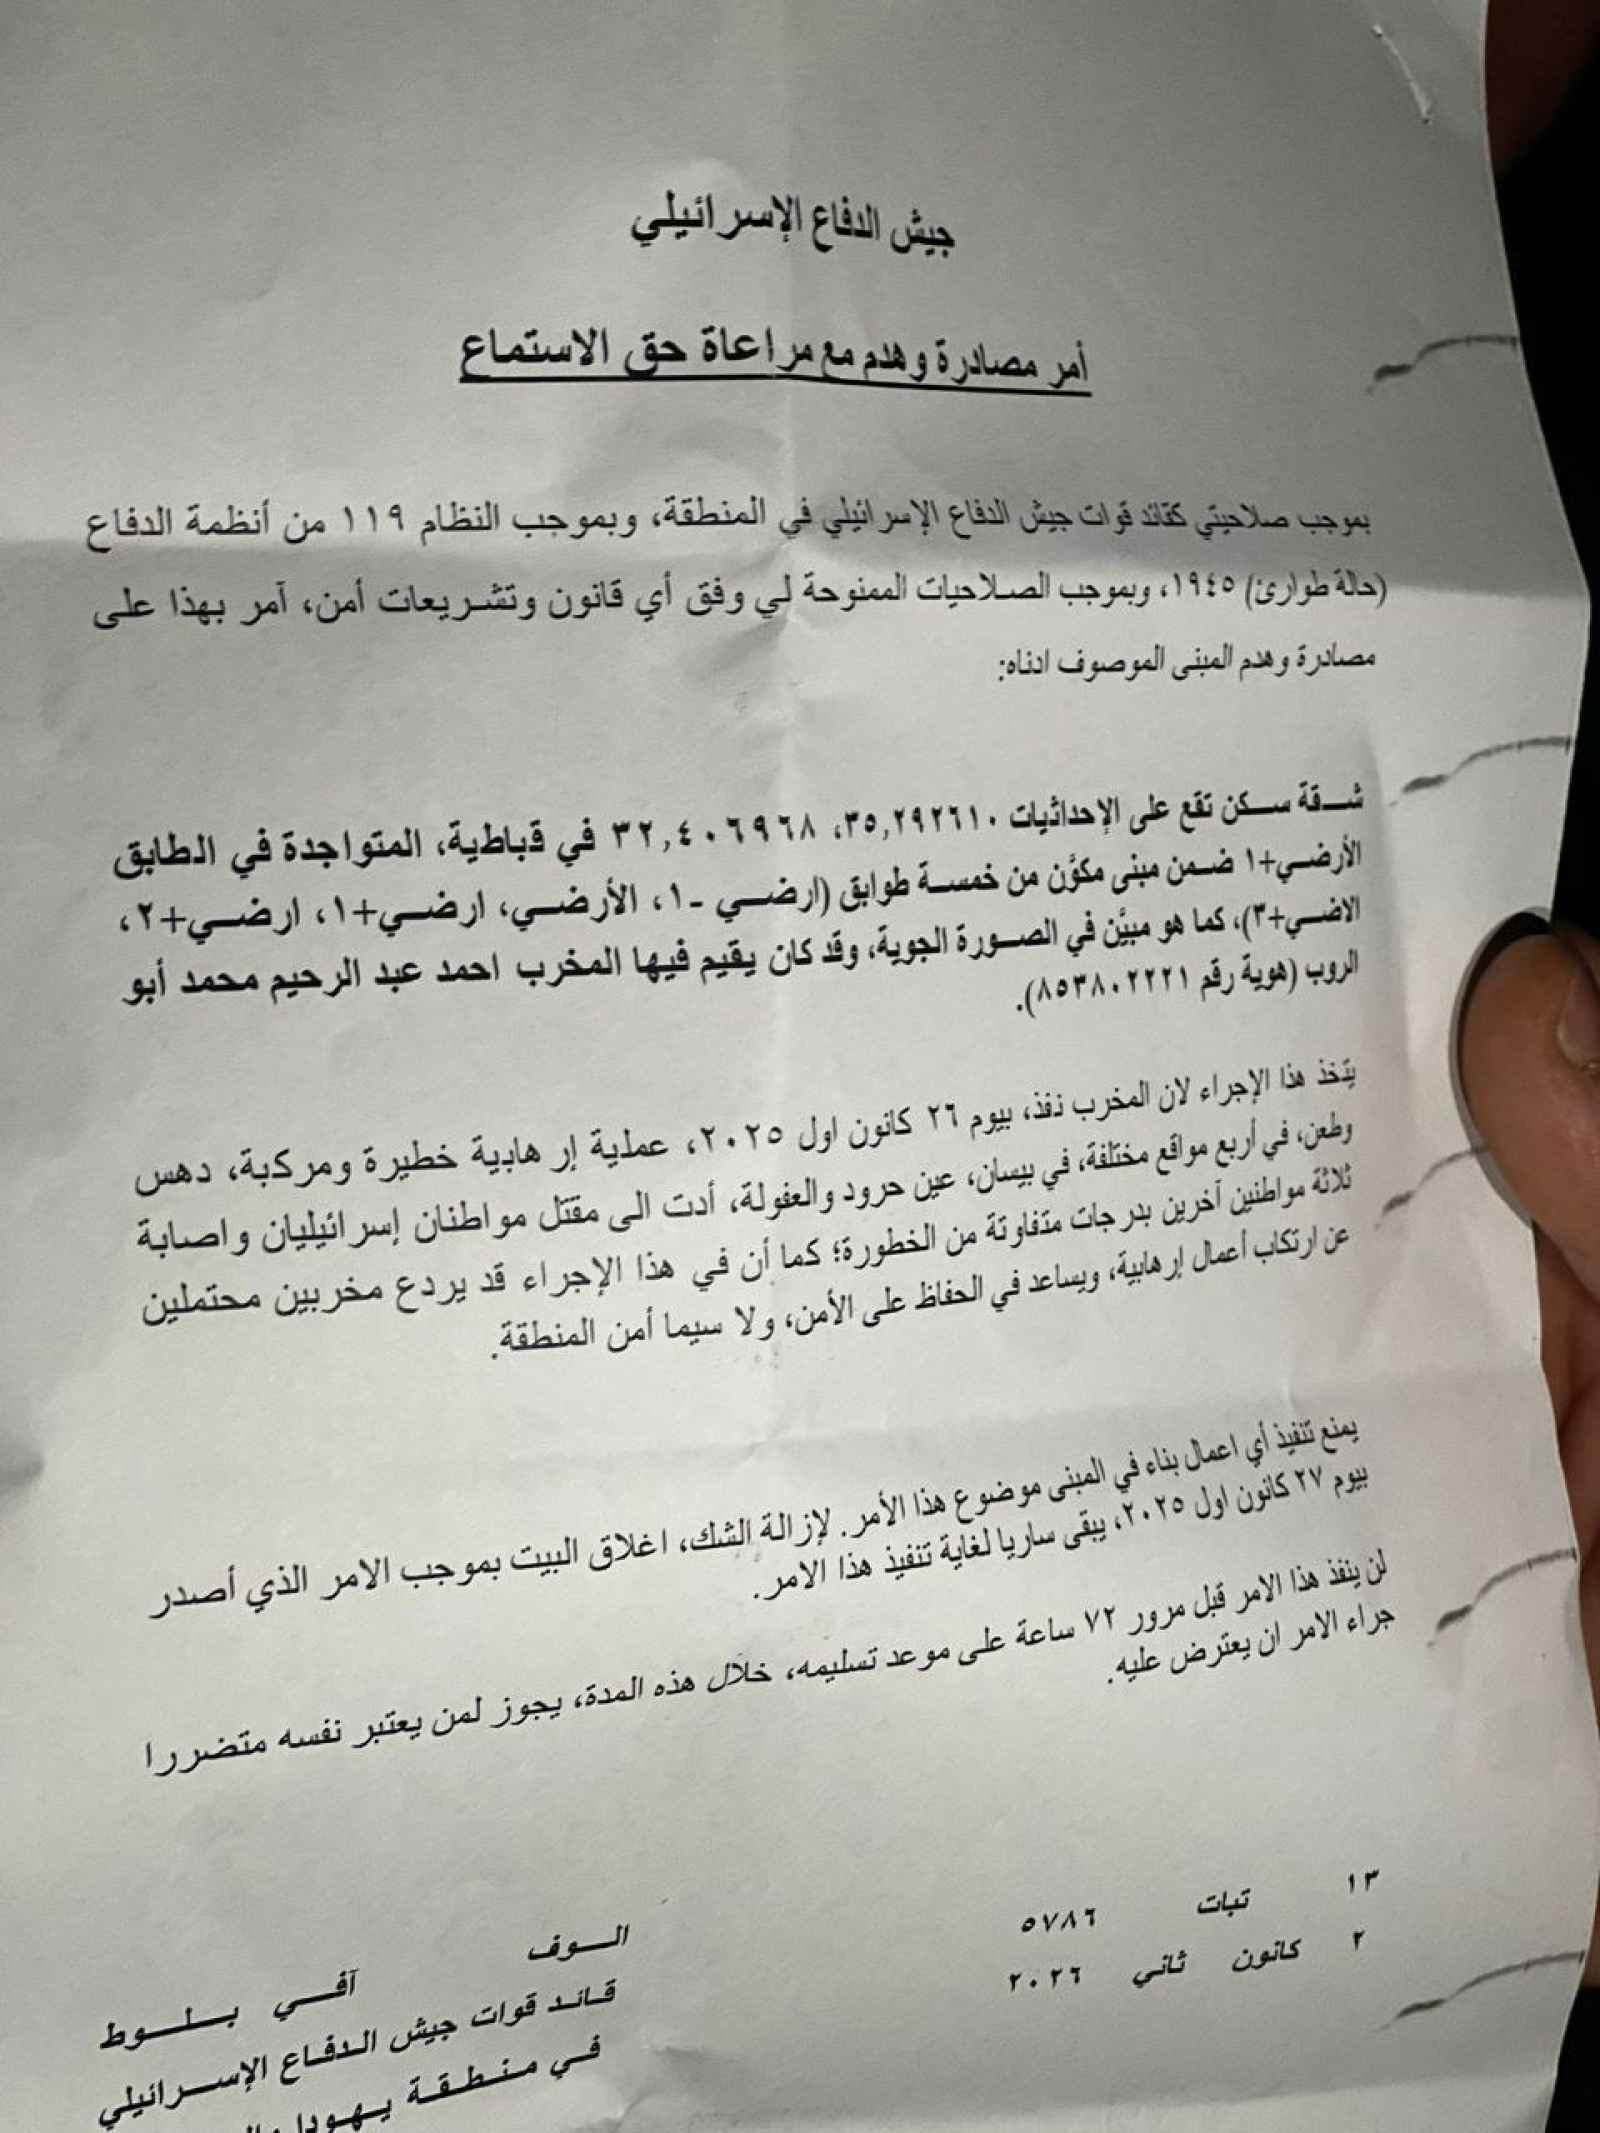 جيش الدفاع الإسرائيلي
أمر مصادرة وهدم مع مراعاة حق الاستماع
بموجب صلاحيتي كقائد قوات جيش الدفاع الإسرائيلي في المنطقة، وبموجب النظام ١١٩ من أنظمة الدفاع
(حالة طوارئ) ١٩٤٥، وبموجب الصلاحيات الممنوحة لي وفق أي قانون وتشريعات أمن، آمر بهذا على
مصادرة وهدم المبنى الموصوف ادناه:
شقة سكن تقع على الإحداثيات ٣٥,٢٩٢٦١٠، ٣٢,٤٠٦٩٦٨ في قباطية، المتواجدة في الطابق
الأرضي+١ ضمن مبنى مكوَّن من خمسة طوابق (ارضي -١، الأرضي، ارضي+١، ارضي+٢،
الاضي+٣)، كما هو مبيَّن في الصورة الجوية، وقد كان يقيم فيها المخرب احمد عبد الرحيم محمد أبو
الروب (هوية رقم ٨٥٣٨٠٢٢٢١).
يتخذ هذا الإجراء لان المخرب نفذ، بيوم ٢٦ كانون اول ٢٠٢٥، عملية إرهابية خطيرة ومركبة، دهس
وطعن، في أربع مواقع مختلفة، في بيسان، عين حرود والعفولة، أدت الى مقتل مواطنان إسرائيليان واصابة
ثلاثة مواطنين آخرين بدرجات متفاوتة من الخطورة؛ كما أن في هذا الإجراء قد يردع مخربين محتملين
عن ارتكاب أعمال إرهابية، ويساعد في الحفاظ على الأمن، ولا سيما أمن المنطقة.
يمنع تنفيذ أي اعمال بناء في المبنى موضوع هذا الأمر. لإزالة الشك، اغلاق البيت بموجب الامر الذي أصدر
بيوم ٢٧ كانون اول ٢٠٢٥، يبقى ساريا لغاية تنفيذ هذا الامر.
لن ينفذ هذا الامر قبل مرور ٧٢ ساعة على موعد تسليمه، خلال هذه المدة، يجوز لمن يعتبر نفسه متضررا
جراء الامر ان يعترض عليه.
١٣ تبات ٥٧٨٦
٢ كانون ثاني ٢٠٢٦
الوف آفي بلوط
قائد قوات جيش الدفاع الإسرائيلي
في منطقة يهودا